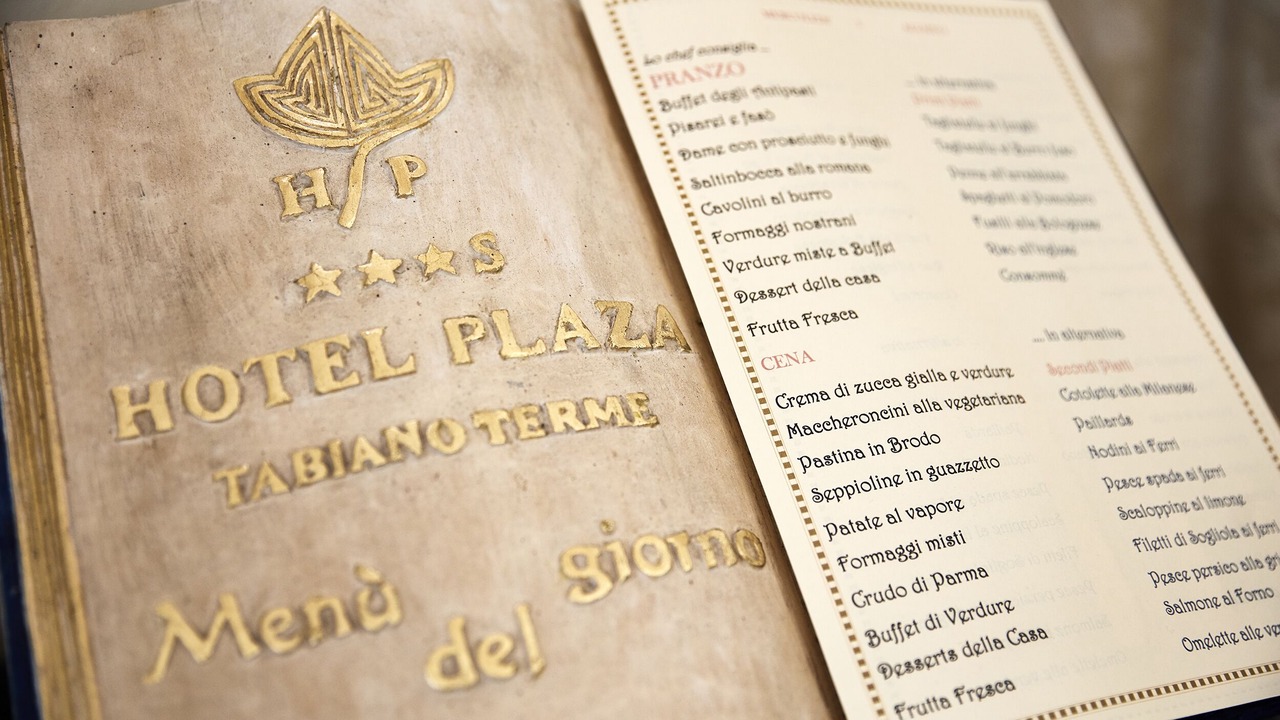 H P
S
HOTEL PLAZA
TABIANO TERME
Menù del giorno
Lo chef consiglia ...
PRANZO
Buffet degli Antipasti
Pisarei e fasò
Dame con prosciutto e funghi
Saltinbocca alla romana
Cavolini al burro
Formaggi nostrani
Verdure miste a Buffet
Dessert della casa
Frutta Fresca
CENA
Crema di zucca gialla e verdure
Maccheroncini alla vegetariana
Pastina in Brodo
Seppioline in guazzetto
Patate al vapore
Formaggi misti
Crudo di Parma
Buffet di Verdure
Desserts della Casa
Frutta Fresca
... in alternativa
Tagliatelle ai funghi
Tagliatelle al Burro
Penne all'arrabbiata
Spaghetti al Pomodoro
Fusilli alla Bolognese
Riso all'inglese
Consommé
... in alternativa
Secondi Piatti
Cotolette alla Milanese
Paillarda
Nodini ai Ferri
Pesce spada ai ferri
Scaloppine al limone
Filetti di Sogliola ai ferri
Pesce persico alla
Salmone al Forno
Omelette alle